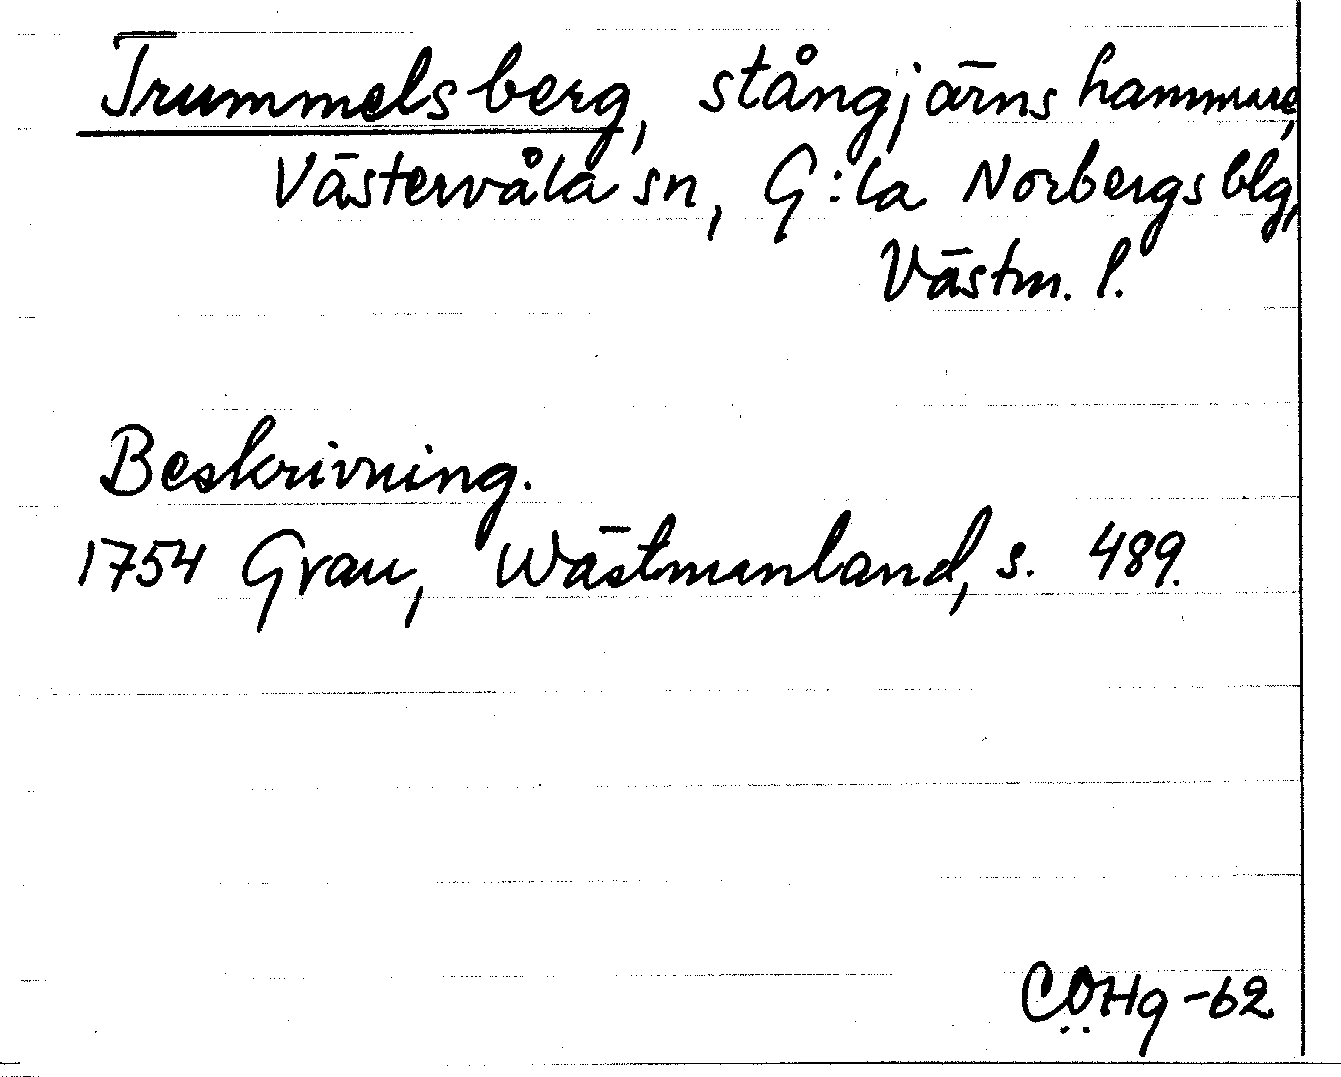 Trummelsberg, stångjärnshammare,
Västervåla sn, G:la Norbergs blg,
Västm. l.
Beskrivning.
1754 Grau, Wästmanland, s. 489.
CÖHg -62